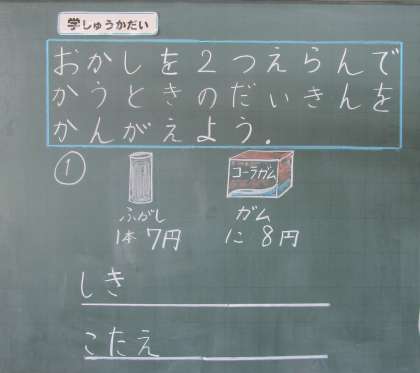 学しゅうかだい
おかしを2つえらんで
かうときのだいきんを
かんがえよう.
①
コーラガム
ふがし ガム
1本7円 1こ8円
しき
こたえ